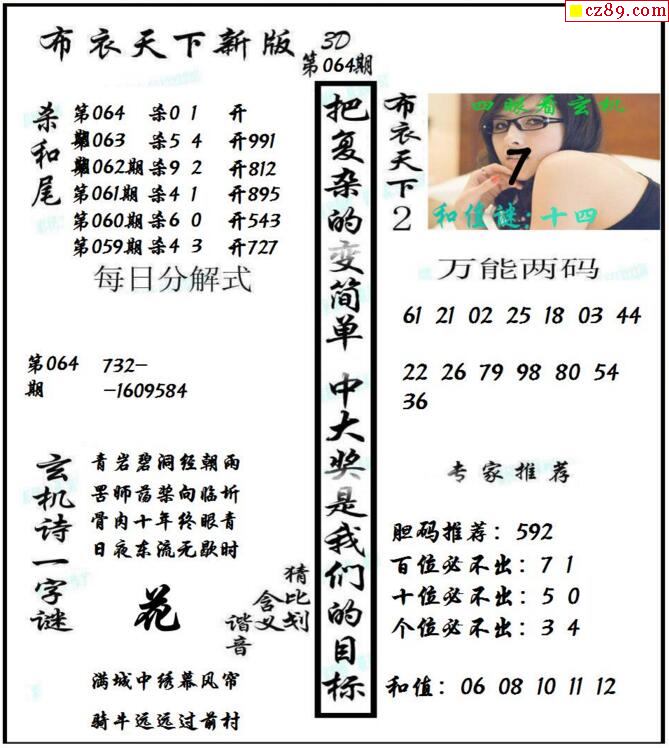 cz89.com
布衣天下新版 3D
第064期
杀和尾
第064 杀0 1 开
期063 杀5 4 开991
第062期 杀9 2 开812
第061期 杀4 1 开895
第060期 杀6 0 开543
第059期 杀4 3 开727
每日分解式
第064期 732-
-1609584
玄机诗一字谜
青岩碧洞经朝雨
罟师荡桨向临圻
骨肉十年终眼青
日夜东流无歇时
花
猜比划
含义
谐音
满城中绣幕风帘
骑斗远远过前村
把复杂的变简单 中大奖是我们的目标
布衣天下2
四眼看玄机
7
和值谜:十四
万能两码
61 21 02 25 18 03 44
22 26 79 98 80 54
36
专家推荐
胆码推荐: 592
百位必不出: 7 1
十位必不出: 5 0
个位必不出: 3 4
和值: 06 08 10 11 12